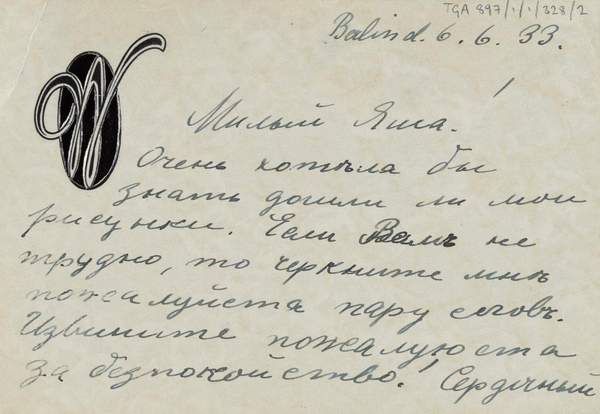 TGA 897/1/1/328/2
Balin d. 6. 6. 33.
W
Милый Яша!
Очень хотѣла бы
знать дошли ли мои
рисунки. Если Вамъ не
трудно, то черкните мнѣ
пожалуйста пару словъ.
Извините пожалуюста
за безпокойство! Сердечный